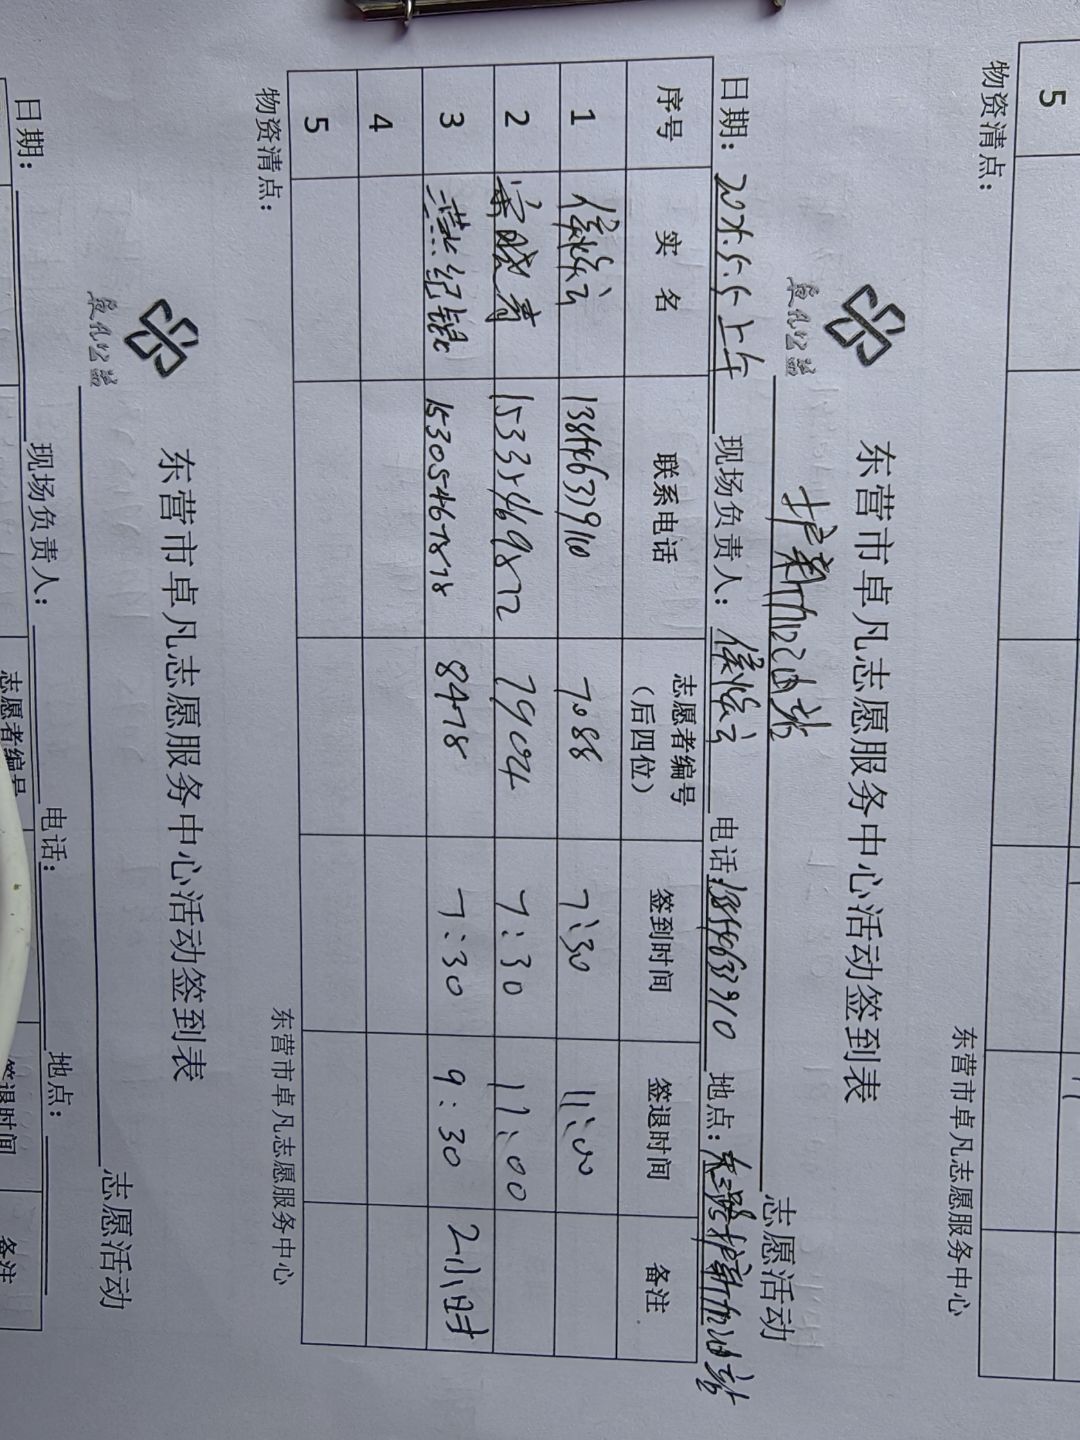 5
物资清点：
东营市卓凡志愿服务中心
卓凡公益
东营市卓凡志愿服务中心活动签到表
护新加油站 志愿活动
日期：2025.5.5上午 现场负责人：侯怡云 电话：13854633910 地点：护新加油站
序号 实 名 联系电话 志愿者编号（后四位） 签到时间 签退时间 备注
1 侯怡云 13854633910 7088 7:30 11:00
2 宋晓青 15335469872 7904 7:30 11:00
3 燕纪锟 15305467878 8478 7:30 9:30 2小时
4
5
物资清点：
东营市卓凡志愿服务中心
卓凡公益
东营市卓凡志愿服务中心活动签到表
志愿活动
日期： 现场负责人： 电话： 地点：
志愿者编号 签退时间 备注